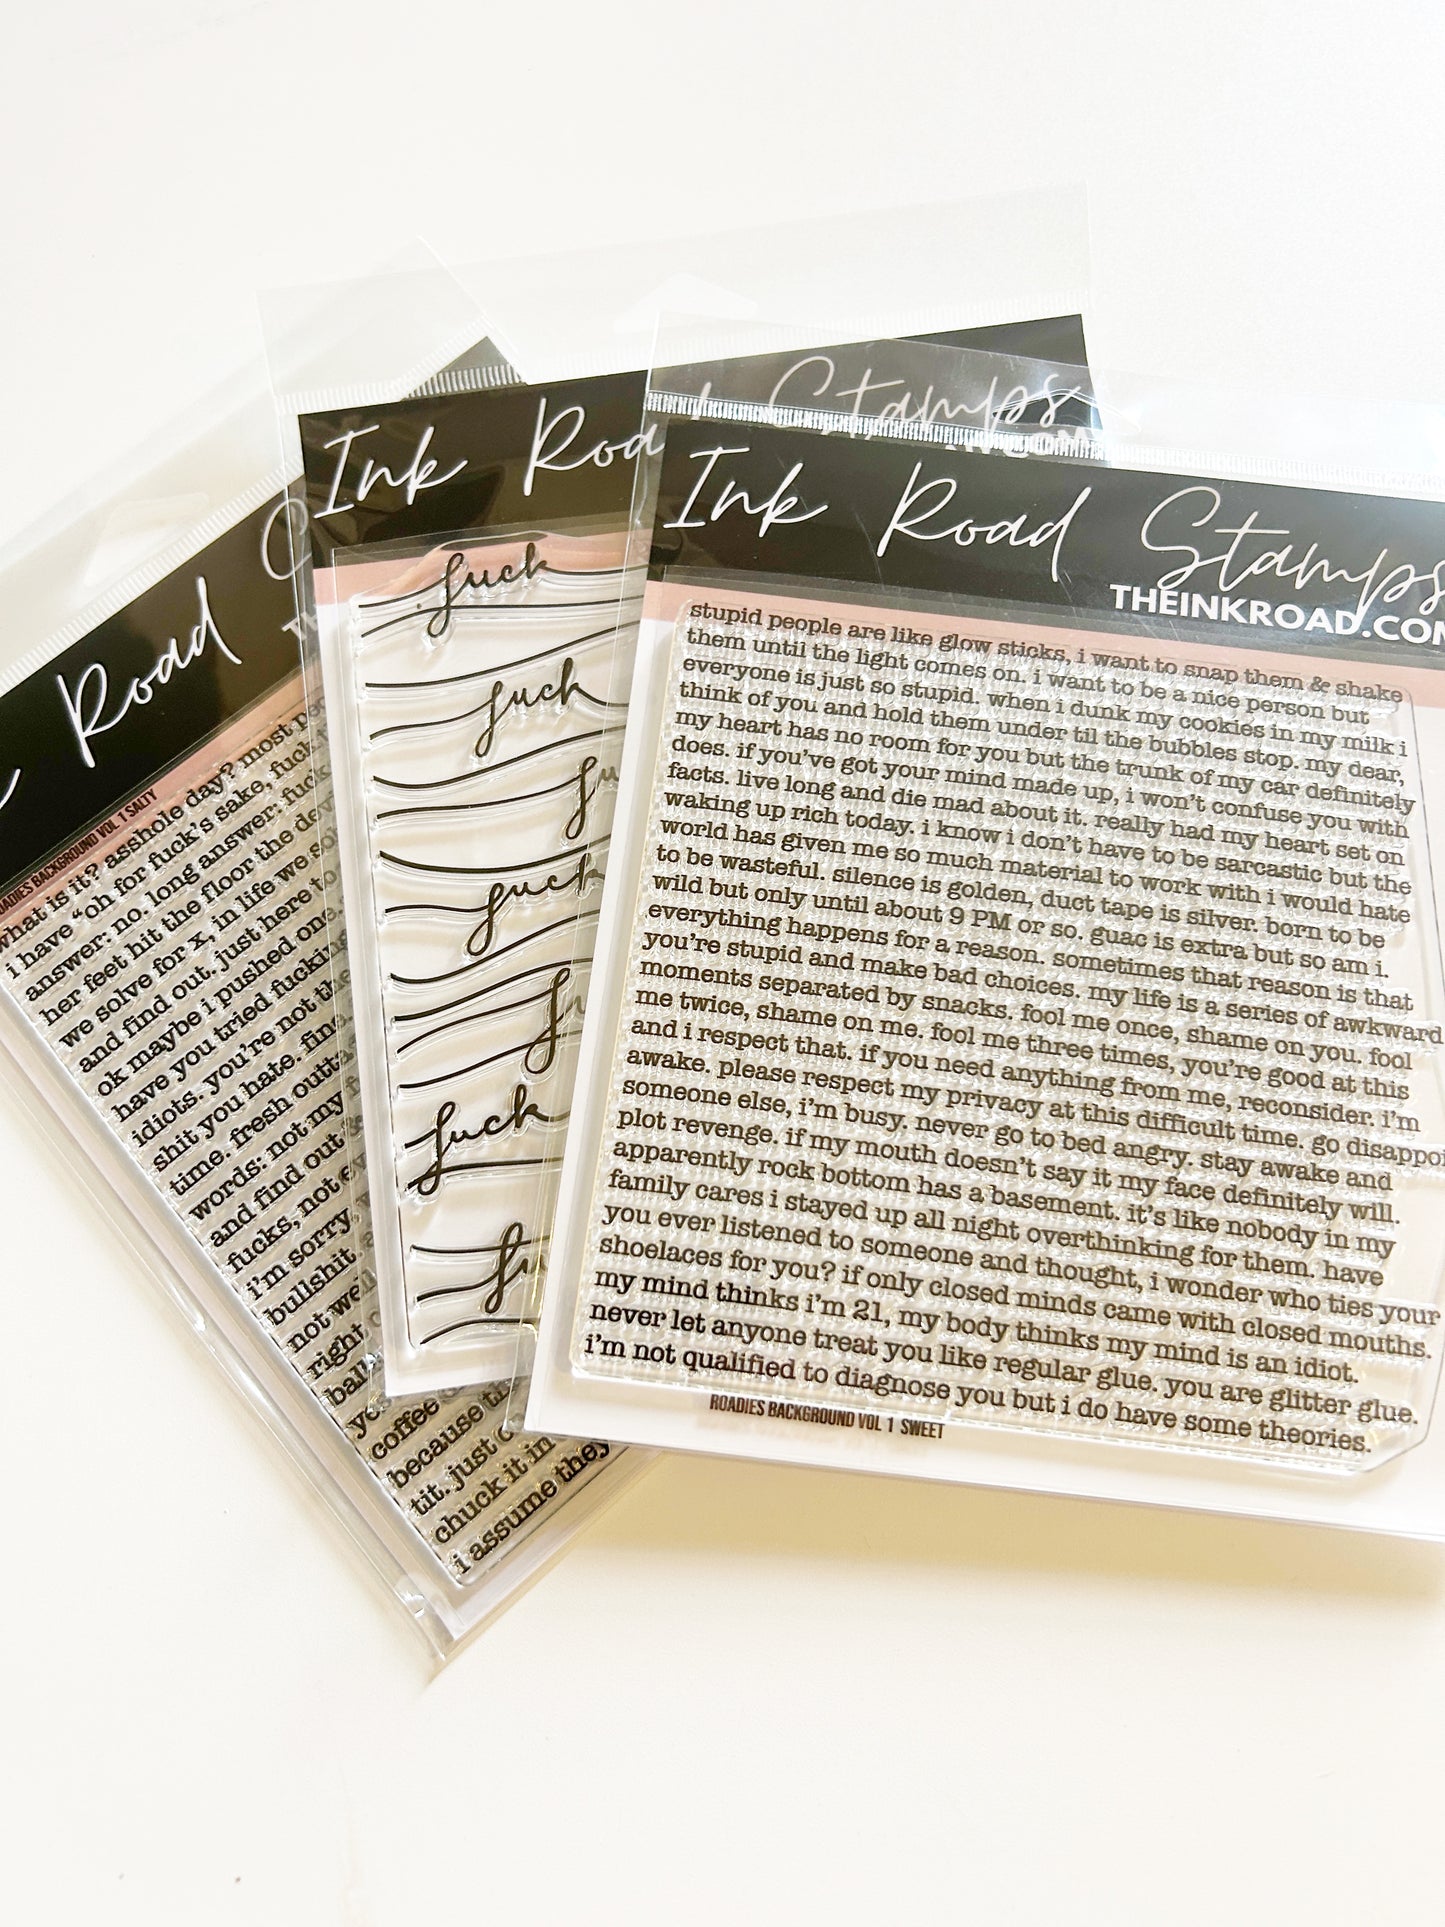 Road
ROADIES BACKGROUND VOL 1 SALTY
what is it? asshole day? most
i have "oh for fuck's sake, fuck
answer: no. long answer: fuck
her feet hit the floor the
we solve for x, in life we
and find out. just here to
ok maybe i pushed one.
have you tried fucking
idiots. you're not the
shit you hate.
time. fresh outta
words: not my
and find out
fucks, not
i'm sorry,
bullshit.
not
right
coffee
because
tit. just
chuck it in
i assume they
Ink Road Stamps
fuck
fuck
fuck
fuck
Ink Road Stamps
THEINKROAD.COM
stupid people are like glow sticks, i want to snap them & shake
them until the light comes on. i want to be a nice person but
everyone is just so stupid. when i dunk my cookies in my milk i
think of you and hold them under til the bubbles stop. my dear,
my heart has no room for you but the trunk of my car definitely
does. if you've got your mind made up, i won't confuse you with
facts. live long and die mad about it. really had my heart set on
waking up rich today. i know i don't have to be sarcastic but the
world has given me so much material to work with i would hate
to be wasteful. silence is golden, duct tape is silver. born to be
wild but only until about 9 PM or so. guac is extra but so am i.
everything happens for a reason. sometimes that reason is that
you're stupid and make bad choices. my life is a series of awkward
moments separated by snacks. fool me once, shame on you. fool
me twice, shame on me. fool me three times, you're good at this
and i respect that. if you need anything from me, reconsider. i'm
awake. please respect my privacy at this difficult time. go disappoi
someone else, i'm busy. never go to bed angry. stay awake and
plot revenge. if my mouth doesn't say it my face definitely will.
apparently rock bottom has a basement. it's like nobody in my
family cares i stayed up all night overthinking for them. have
you ever listened to someone and thought, i wonder who ties your
shoelaces for you? if only closed minds came with closed mouths.
my mind thinks i'm 21, my body thinks my mind is an idiot.
never let anyone treat you like regular glue. you are glitter glue.
i'm not qualified to diagnose you but i do have some theories.
ROADIES BACKGROUND VOL 1 SWEET